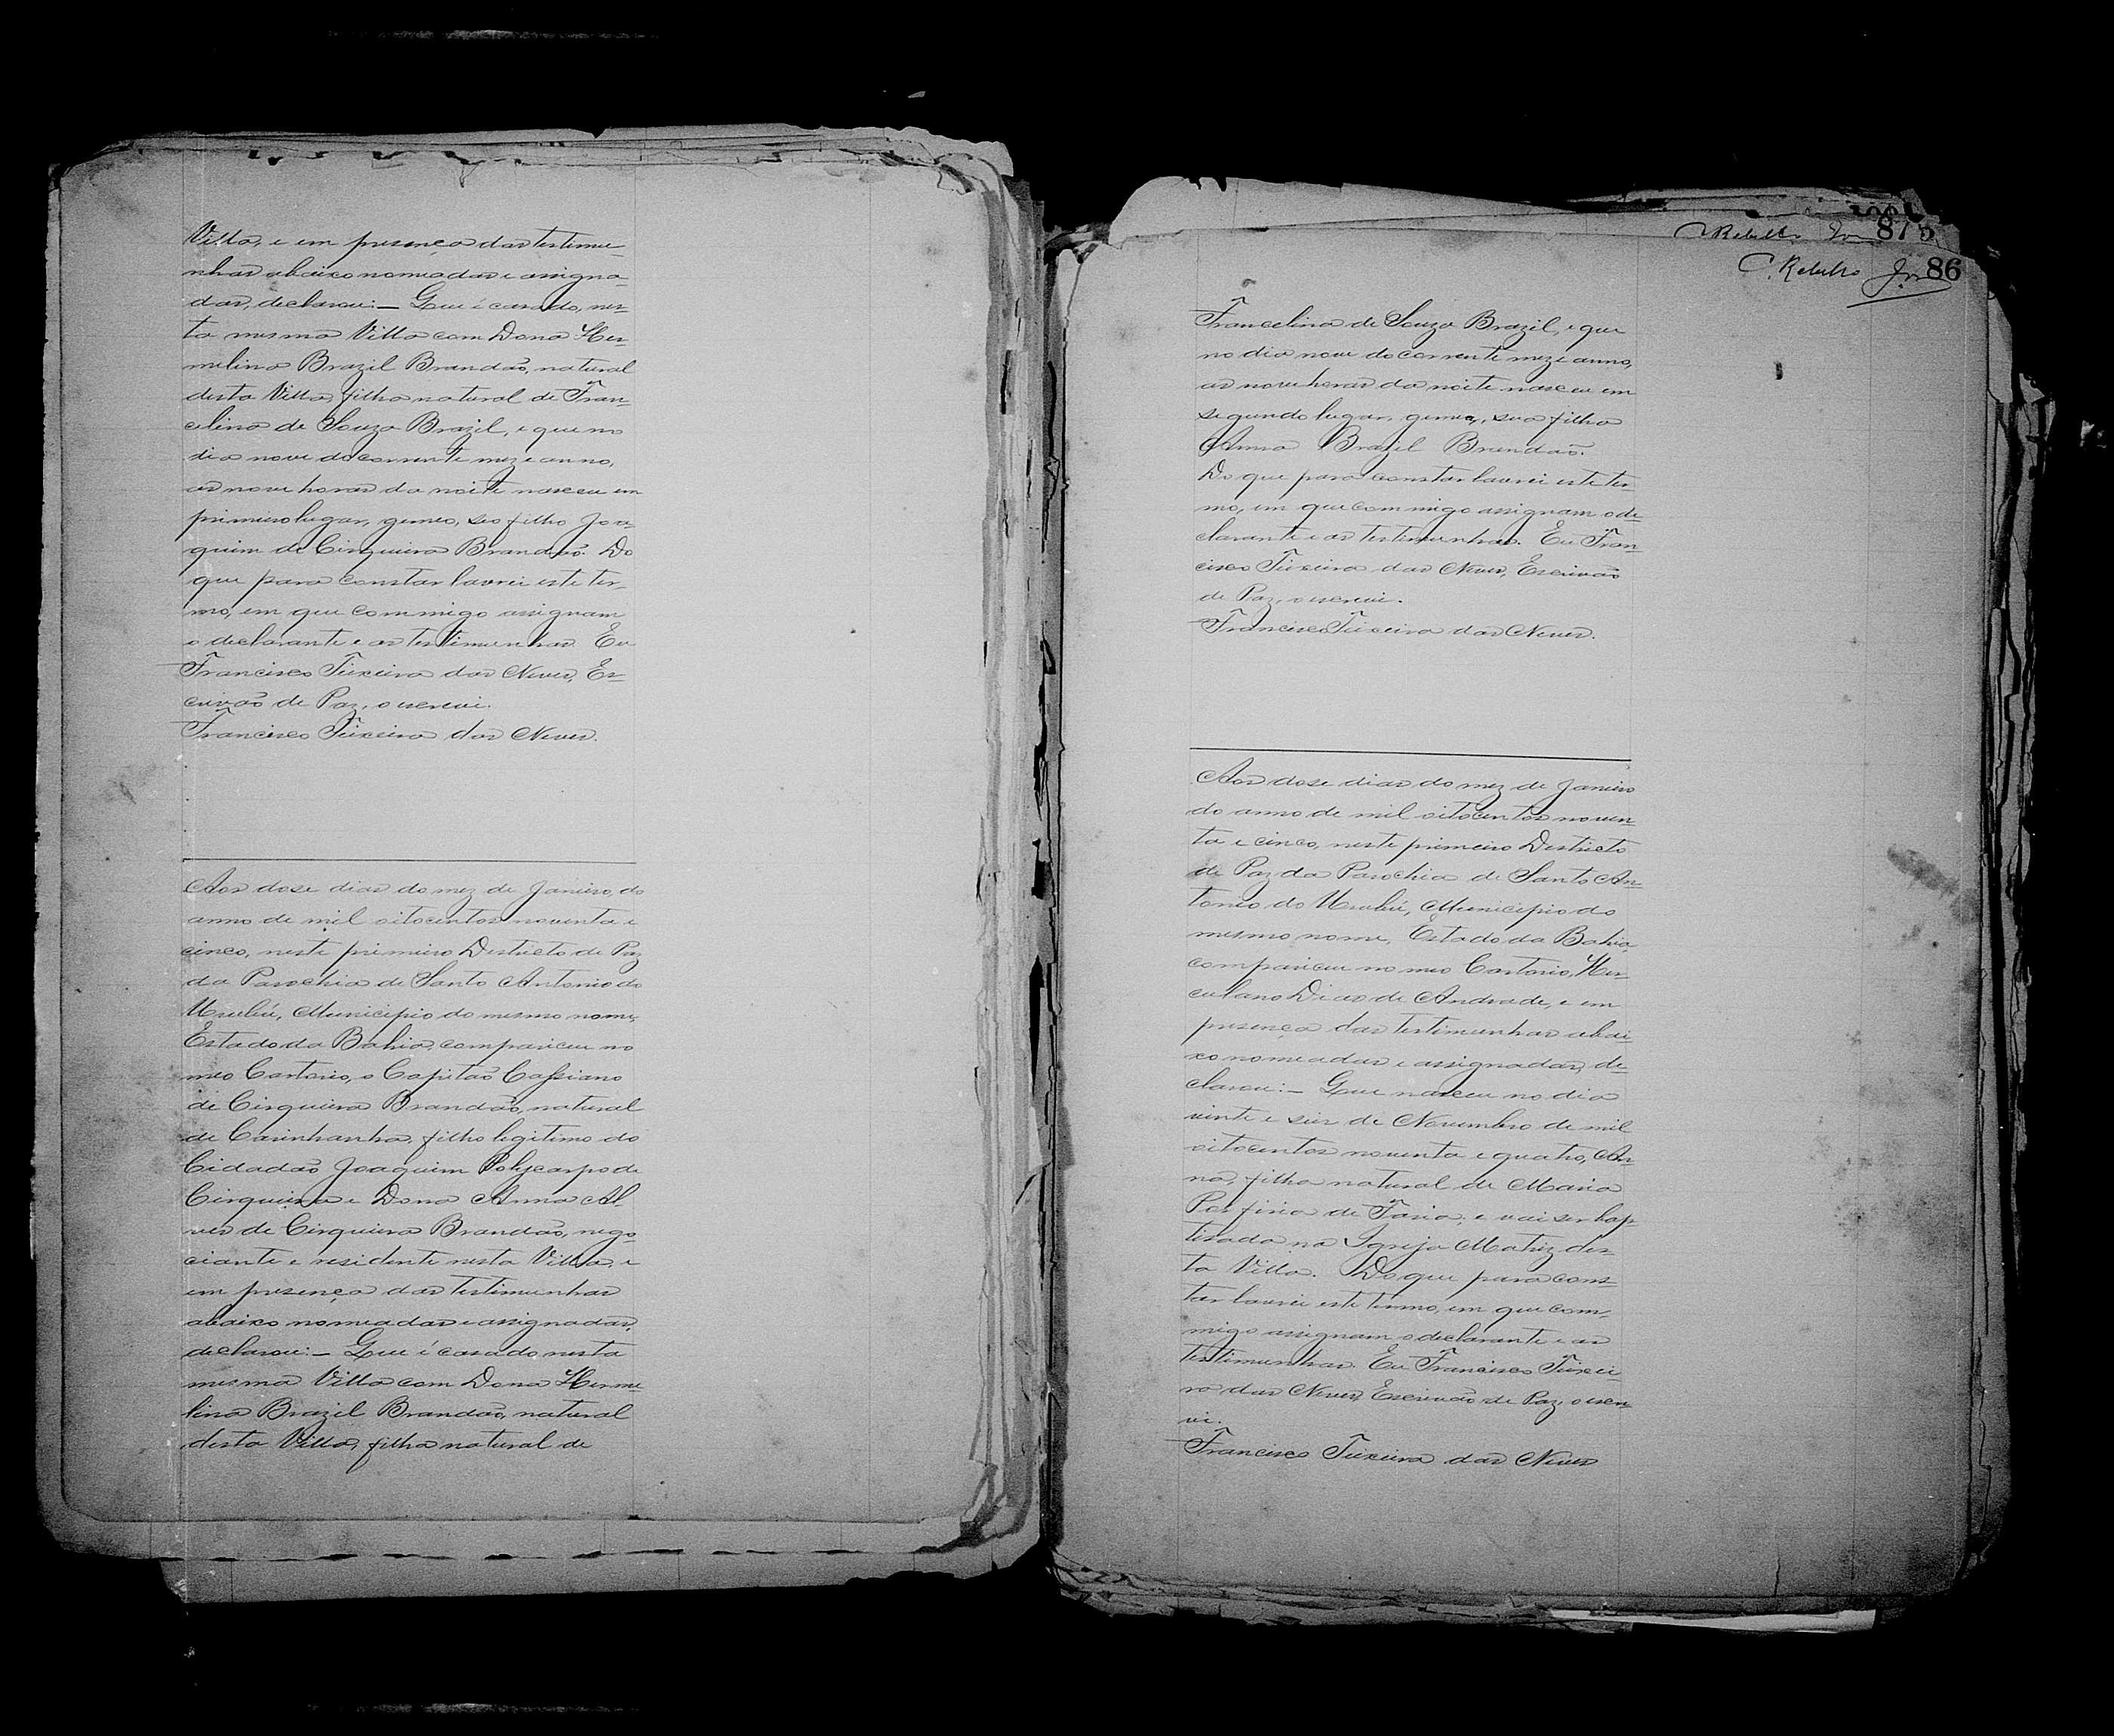 Villa, e em presença das testimu-
nhas abaixo nomeadas e assigna-
das, declarou:— Que é casado, nes-
ta mesma Villa com Dona Her-
melina Brazil Brandão, natural
desta Villa, filha natural de Fran-
celina de Souza Brazil, e que no
dia nove do corrente mez e anno,
as nove horas da noite nasceu em
primeiro lugar, gemeo, seo filho Joa-
quim de Cirqueira Brandão. Do
que para constar lavrei este ter-
mo, em que commigo assignam
o declarante e as testimunhas. Eu
Francisco Teixeira das Neves, Es-
crivão de Paz, o escrevi.
Francisco Teixeira das Neves.
Aos dose dias do mez de Janeiro, do
anno de mil oitocentos noventa e
cinco, neste primeiro Destricto de Paz
da Parochia de Santo Antonio do
Urubú, Municipio do mesmo nome,
Estado da Bahia, compareceu no
meo Cartorio, o Capitão Cassiano
de Cirqueira Brandão, natural
de Carinhanha, filho legitimo do
Cidadão Joaquim Polycarpo de
Cirqueira e Dona Anna Al-
ves de Cirqueira Brandão, nego-
ciante e residente nesta Villa, e
em presença das testimunhas
abaixo nomeadas e assignadas,
declarou:— Que é casado nesta
mesma Villa com Dona Herme-
lina Brazil Brandão, natural
desta Villa, filha natural de
875
Rebello Jor 86
Francelina de Souza Brazil, e que
no dia nove do corrente mez e anno,
as nove horas da noite nasceu em
segundo lugar, gemea, sua filha
Anna Brazil Brandão.
Do que para constar lavrei este ter-
mo, em que commigo assignam o de-
clarante e as testimunhas. Eu Fran-
cisco Teixeira das Neves, Escrivão
de Paz, o escrevi.
Francisco Teixeira das Neves.
Aos dose dias do mez de Janeiro
do anno de mil oitocentos noven-
ta e cinco, neste primeiro Destricto
de Paz da Parochia de Santo An-
tonio do Urubú, Municipio do
mesmo nome, Estado da Bahia,
compareceu no meo Cartorio, Her-
culano Dias de Andrade, e em
presença das testimunhas abai-
xo nomeadas e assignadas, de-
clarou:— Que nasceu no dia
vinte e seis de Novembro de mil
oitocentos noventa e quatro, An-
na, filha natural de Maria
Porfiria de Faria, e vai ser bap-
tisada na Igreja Matriz des-
ta Villa. Do que para cons-
tar lavrei este termo, em que com-
migo assignam o declarante e as
testimunhas. Eu Francisco Teixei-
ra das Neves, Escrivão de Paz, o escre-
vi.
Francisco Teixeira das Neves